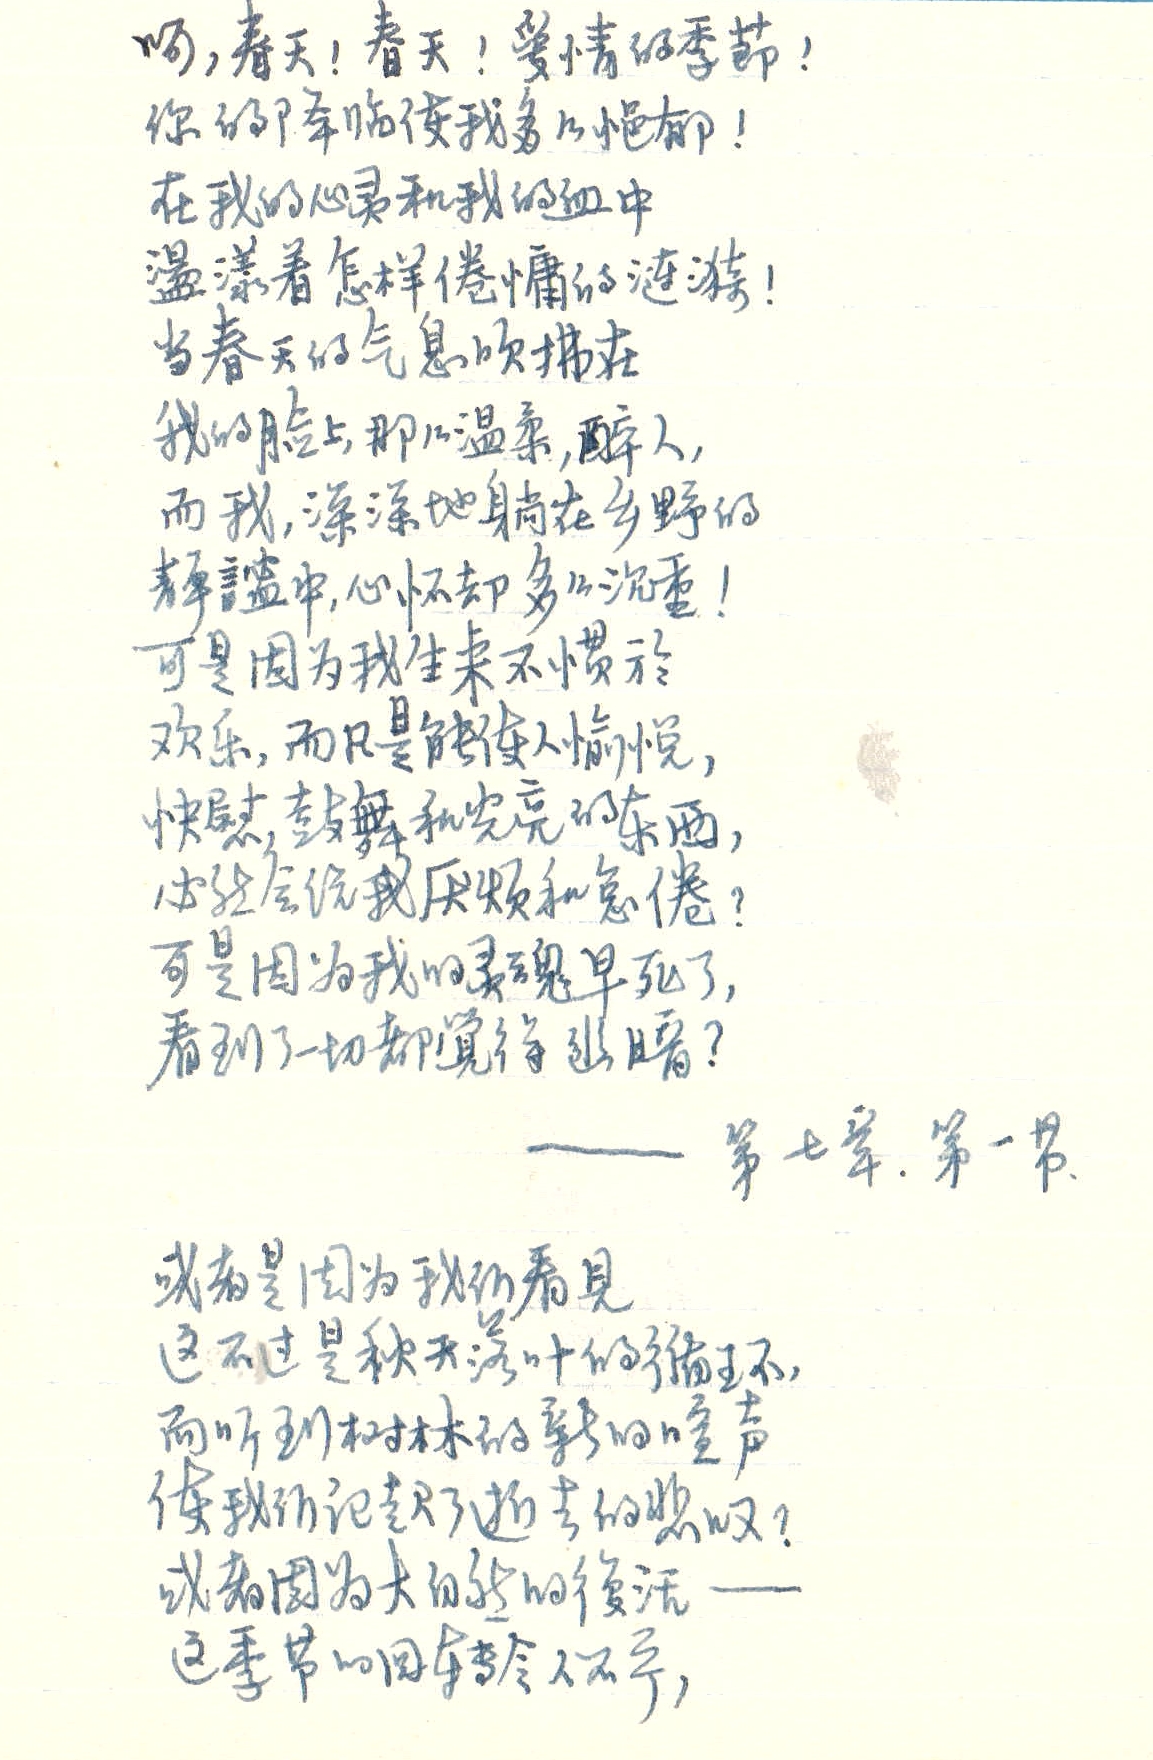 啊,春天!春天!爱情的季節!
你的降临使我多么悒郁!
在我的心灵和我的血中
溫漾着怎样倦慵的涟漪!
当春天的气息吹拂在
我的脸上,那么温柔,醉人,
而我,深深地躺在乡野的
靜謐中,心怀却多么沉重!
可是因为我生来不惯於
欢乐,而凡是能使人愉悦,
快慰,鼓舞和光亮的东西,
必然会给我厌烦和怠倦?
可是因为我的灵魂早死了,
看到了一切都觉得幽暗?
—— 第七章.第一节.
或者是因为我们看見
这不过是秋天落叶的循环,
而听到树林的新的喧声
使我们记起了逝去的悲叹?
或者因为大自然的復活——
这季节的回转令人不宁,